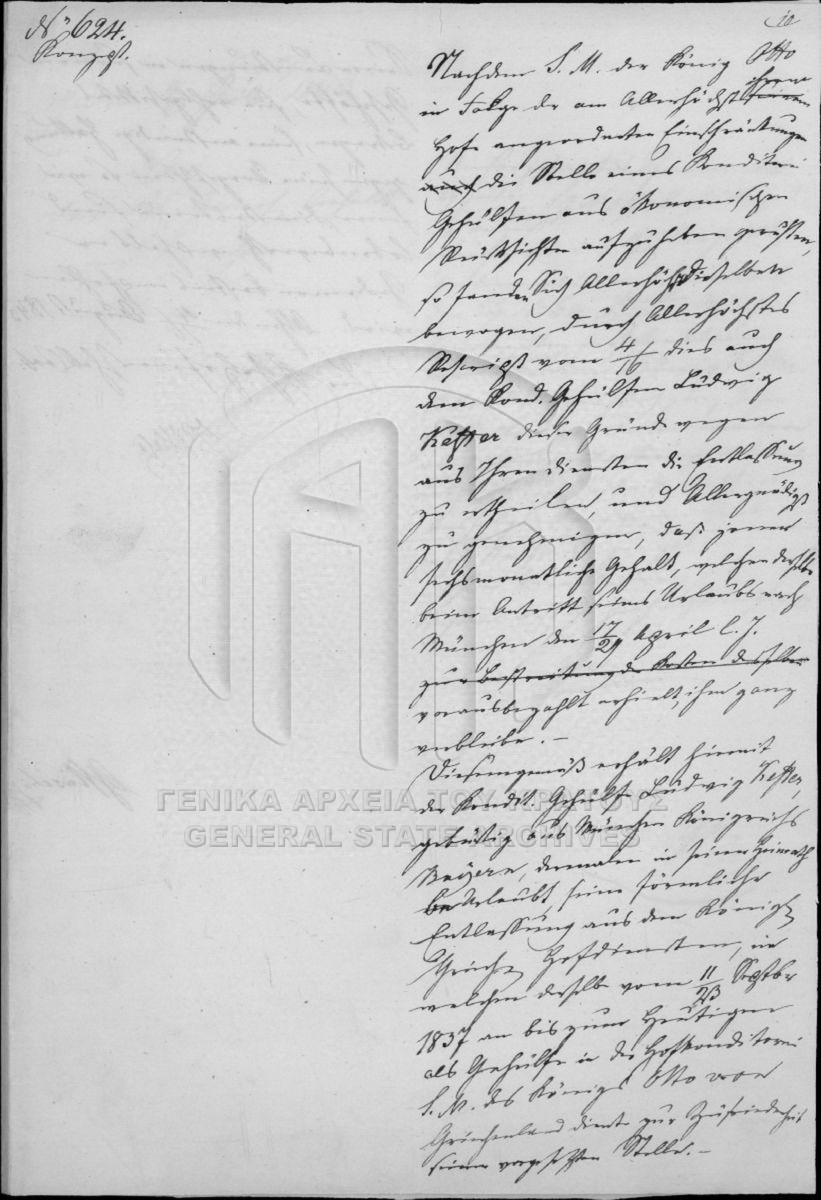 No 624.
Konzept.
Nachdem S. M. der König Otto
in Folge der am Allerhöchst seinem ihrem
Hofe angeordneten Einschränkungen
auch die Stelle eines Konditorei
Gehülfen aus ökonomischen
Rücksichten aufzuheben geruhten,
so fanden Sich Allerhöchstdieselben
bewogen, durch Allerhöchstes
Rescript vom 4/16 dies auch
dem Kond. Gehülfen Ludwig
Keßer dieser Gründe wegen
aus Ihren Diensten die Entlassung
zu ertheilen, und Allergnädigst
zu genehmigen, daß jener
sechsmonatliche Gehalt, welchen derselbe
beim Antritt seines Urlaubs nach
München den 17/29 April l. J.
zur Bestreitung der Kosten desselben
vorausbezahlt erhielt, ihm ganz
verbleibe. —
Diesemgemäß erhält hiemit
der Kondit. Gehülfe Ludwig Keßer,
gebürtig aus München Königreichs
Bayern, dermalen in seiner Heimath
be Urlaubt, seine förmliche
Entlassung aus den Königl.
Griech. Hofdiensten, in
welchen derselbe vom 11/23 Septbr
1837 an bis zum Heutigen
als Gehülfe in der Hofkonditorei
S. M. des Königs Otto von
Griechenland diente zur Zufriedenheit
seiner vorgesetzten Stelle. —
ΓΕΝΙΚΑ ΑΡΧΕΙΑ ΤΟΥ ΚΡΑΤΟΥΣ
GENERAL STATE ARCHIVES